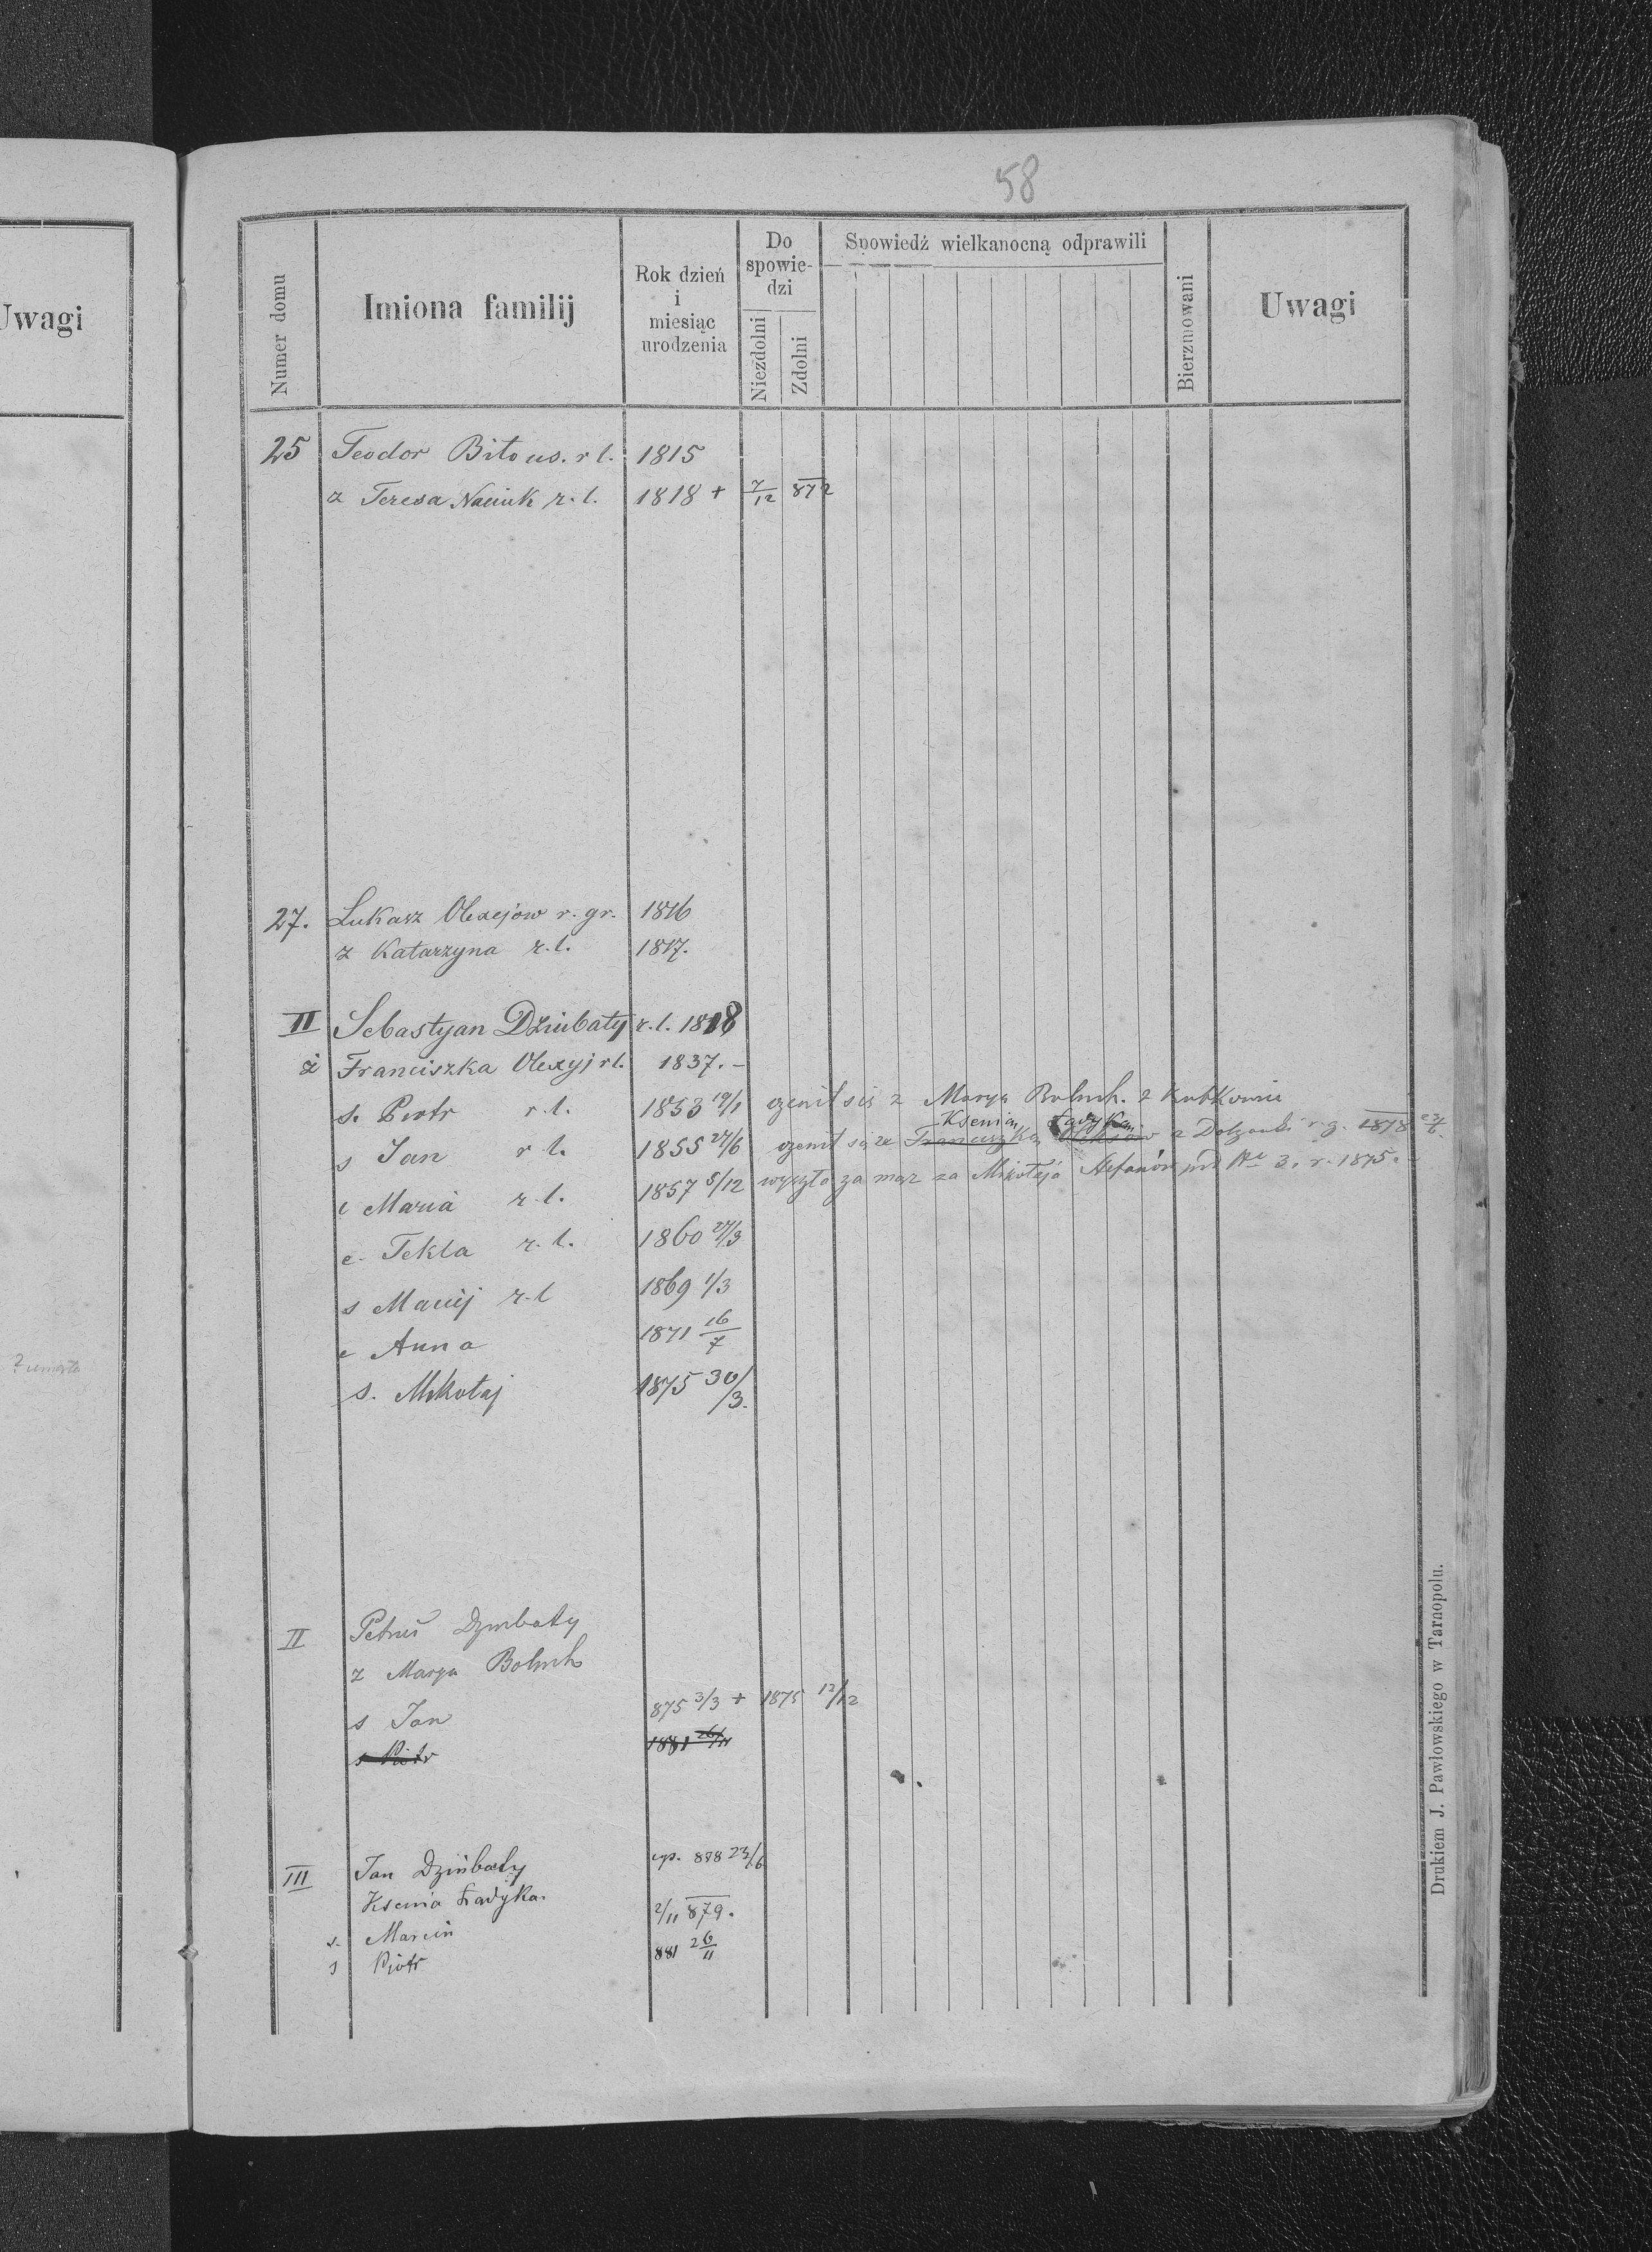 58
Uwagi
Numer domu
Imiona familij
Rok dzień
i
miesiąc
urodzenia
Do
spowie-
dzi
Niezdolni
Zdolni
Spowiedź wielkanocną odprawili
Bierzmowani
Uwagi
25 Teodor Bitous. r l. 1815
z Teresa Naciuk r. l. 1818 + 7/12 872
27. Łukasz Olexejow r. gr. 1816
z Katarzyna r. l. 1817.
II Sebastyan Dziubaty r. l. 1818
ż Franciszka Olexyj rl. 1837. -
s. Piotr r. l. 1853 19/1 ożenił się z Marya Boluch. z Kutkowic
Ksenia Ładyka
s Jan r l. 1855 27/6 ożenił się ze Franciszką Oleksiów z Dołżanki r. g. 1878 23/6.
c Maria r. l. 1857 5/12 wyszła za mąż za Mikołaja Stefanów pod Nr 3. r. 1875.
c. Tekla r. l. 1860 27/3
s Maciej r. l 1869 1/3
c Anna 1871 16/7
s. Mikołaj 1875 30/3.
? umarła
II Petruś Dziubaty
z Marya Boluch
s Jan 875 3/3 + 1875 12/12
s Piotr 1881 26/11
III Jan Dziubaty cop. 878 23/6
Ksenia Ładyka.
s. Marcin 2/11 879.
s Piotr 881 26/11
Drukiem J. Pawłowskiego w Tarnopolu.